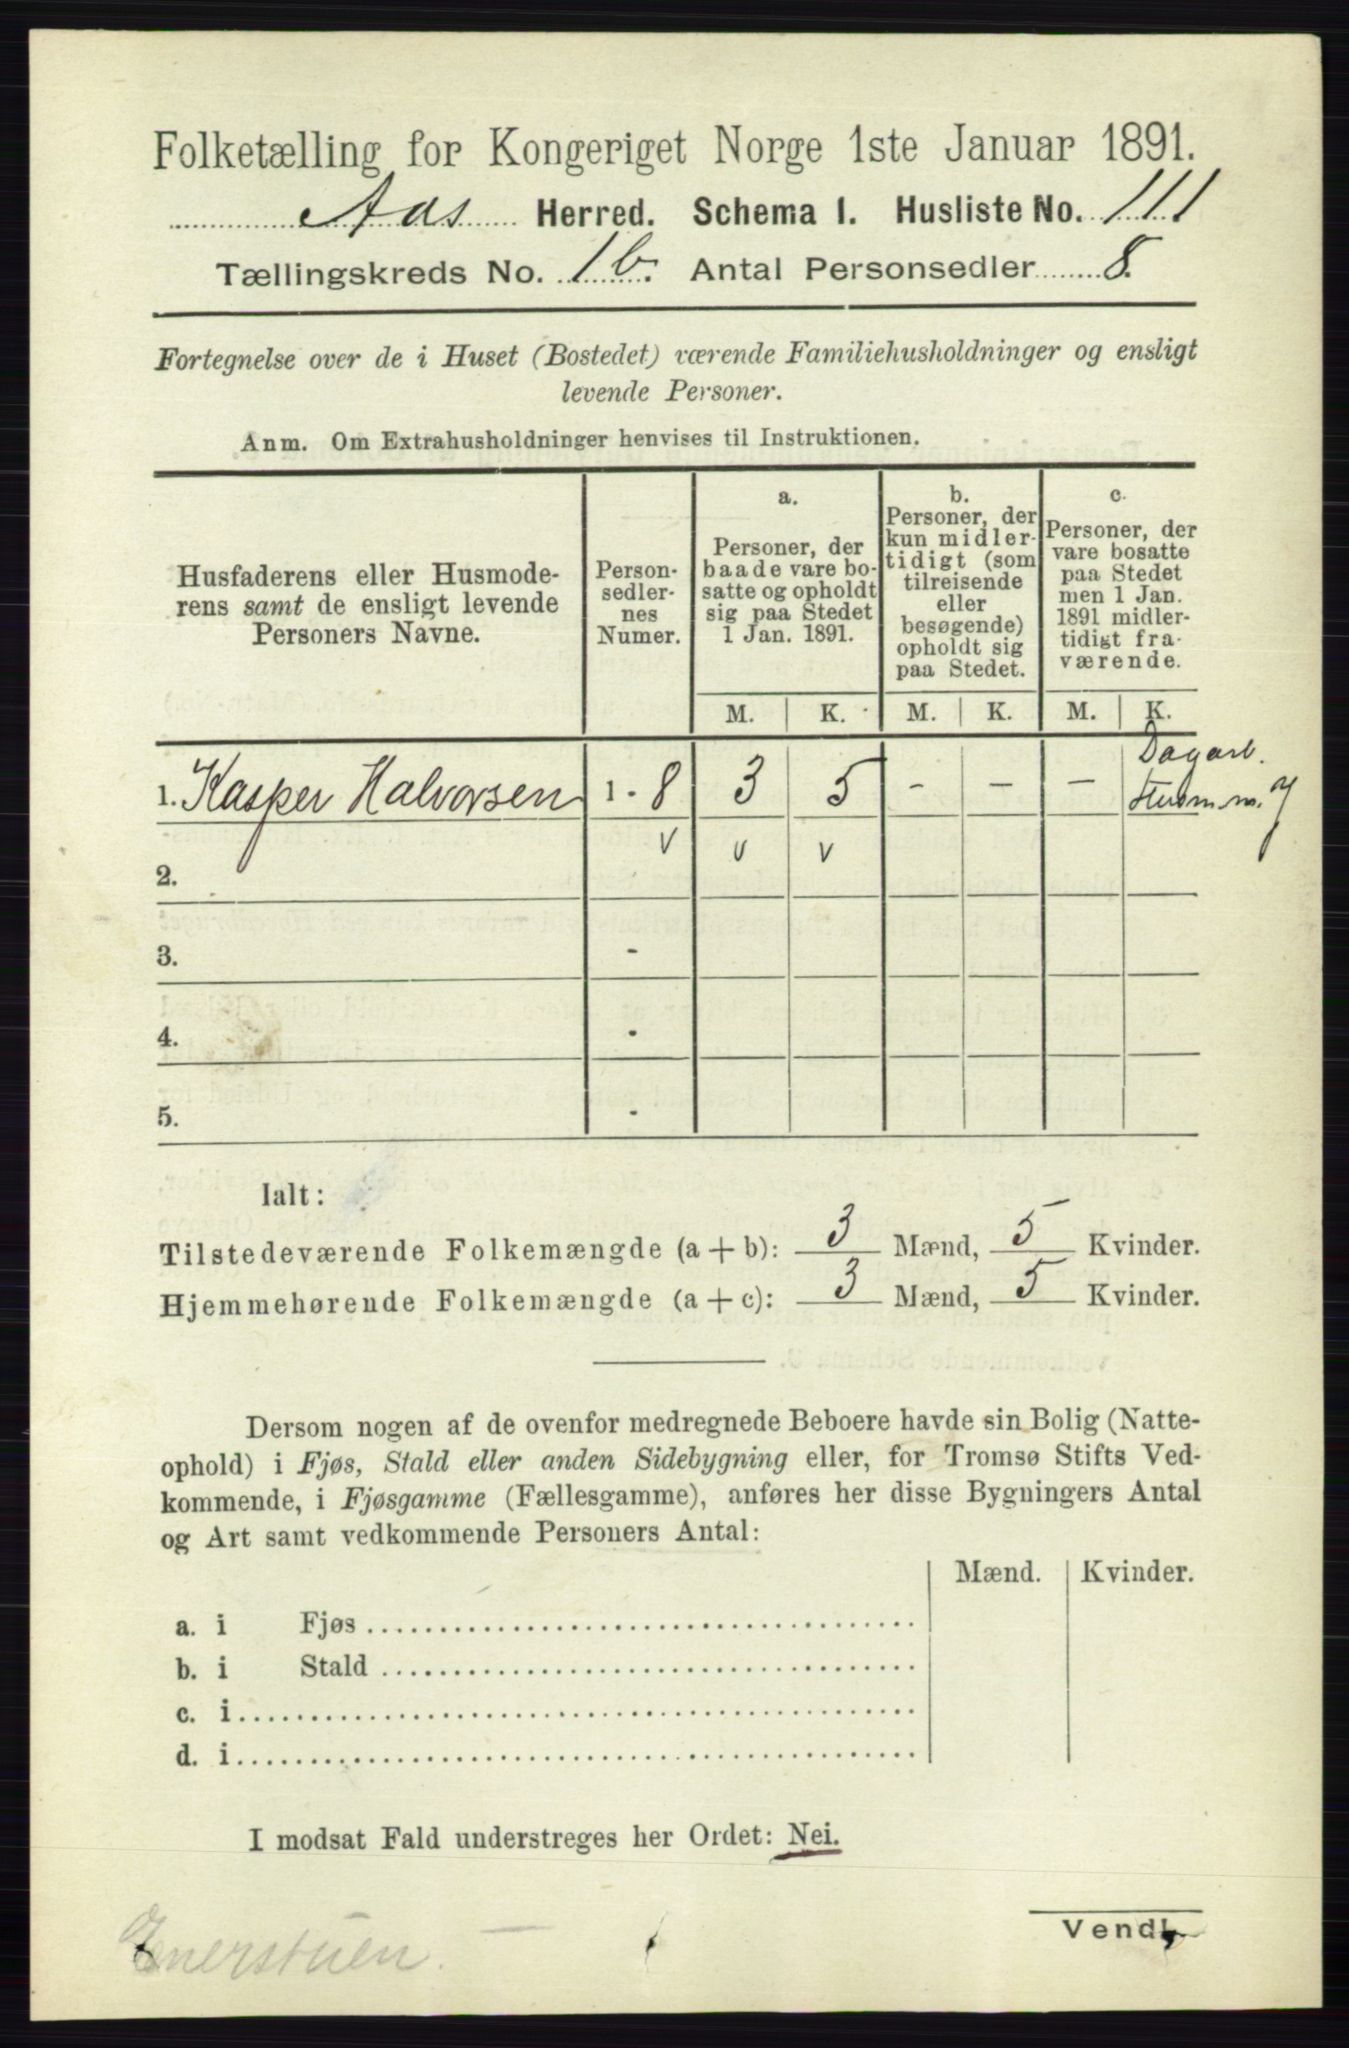 Folketælling for Kongeriget Norge 1ste Januar 1891.
Aas Herred. Schema 1. Husliste No. 111
Tællingskreds No. 1b. Antal Personsedler 8.
Fortegnelse over de i Huset (Bostedet) værende Familiehusholdninger og ensligt
levende Personer.
Anm. Om Extrahusholdninger henvises til Instruktionen.
Husfaderens eller Husmode-
rens samt de ensligt levende
Personers Navne.
Person-
sedler-
nes
Numer.
a.
Personer, der
baade vare bo-
satte og opholdt
sig paa Stedet
1 Jan. 1891.
b.
Personer, der
kun midler-
tidigt (som
tilreisende
eller
besøgende)
opholdt sig
paa Stedet.
c.
Personer, der
vare bosatte
paa Stedet
men 1 Jan.
1891 midler-
tidigt fra-
værende.
M. K. M. K. M. K.
Dagarb.
1. Kasper Halvorsen 1 - 8 3 5 - - -
v v v
2.
3. -
4. -
5. -
Ialt:
Tilstedeværende Folkemængde (a + b): 3 Mænd, 5 Kvinder.
Hjemmehørende Folkemængde (a + c): 3 Mænd, 5 Kvinder.
Dersom nogen af de ovenfor medregnede Beboere havde sin Bolig (Natte-
ophold) i Fjøs, Stald eller anden Sidebygning eller, for Tromsø Stifts Ved-
kommende, i Fjøsgamme (Fællesgamme), anføres her disse Bygningers Antal
og Art samt vedkommende Personers Antal:
Mænd. Kvinder.
a. i Fjøs
b. i Stald
c. i
d. i
I modsat Fald understreges her Ordet: Nei.
Vend!
Enerstuen.